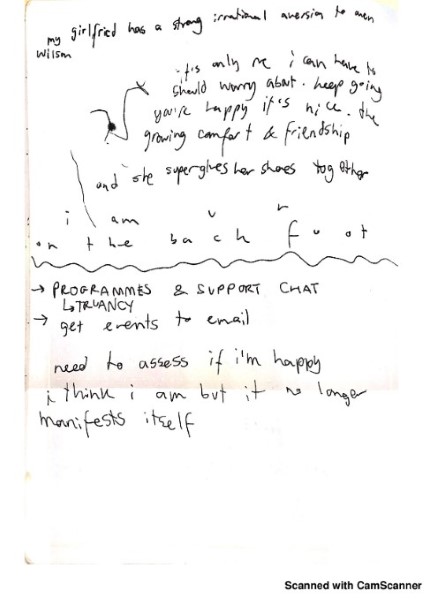 my girlfried has a strong irrational aversion to owen
wilson
it's only me i can have to
should worry about. keep going
you're happy it's nice. the
growing comfort & friendship
and she superglues her shoes together
i am
on the back foot
→ PROGRAMMES & SUPPORT CHAT
↳ TRUANCY
→ get events to email
need to assess if i'm happy
i think i am but it no longer
manifests itself
Scanned with CamScanner